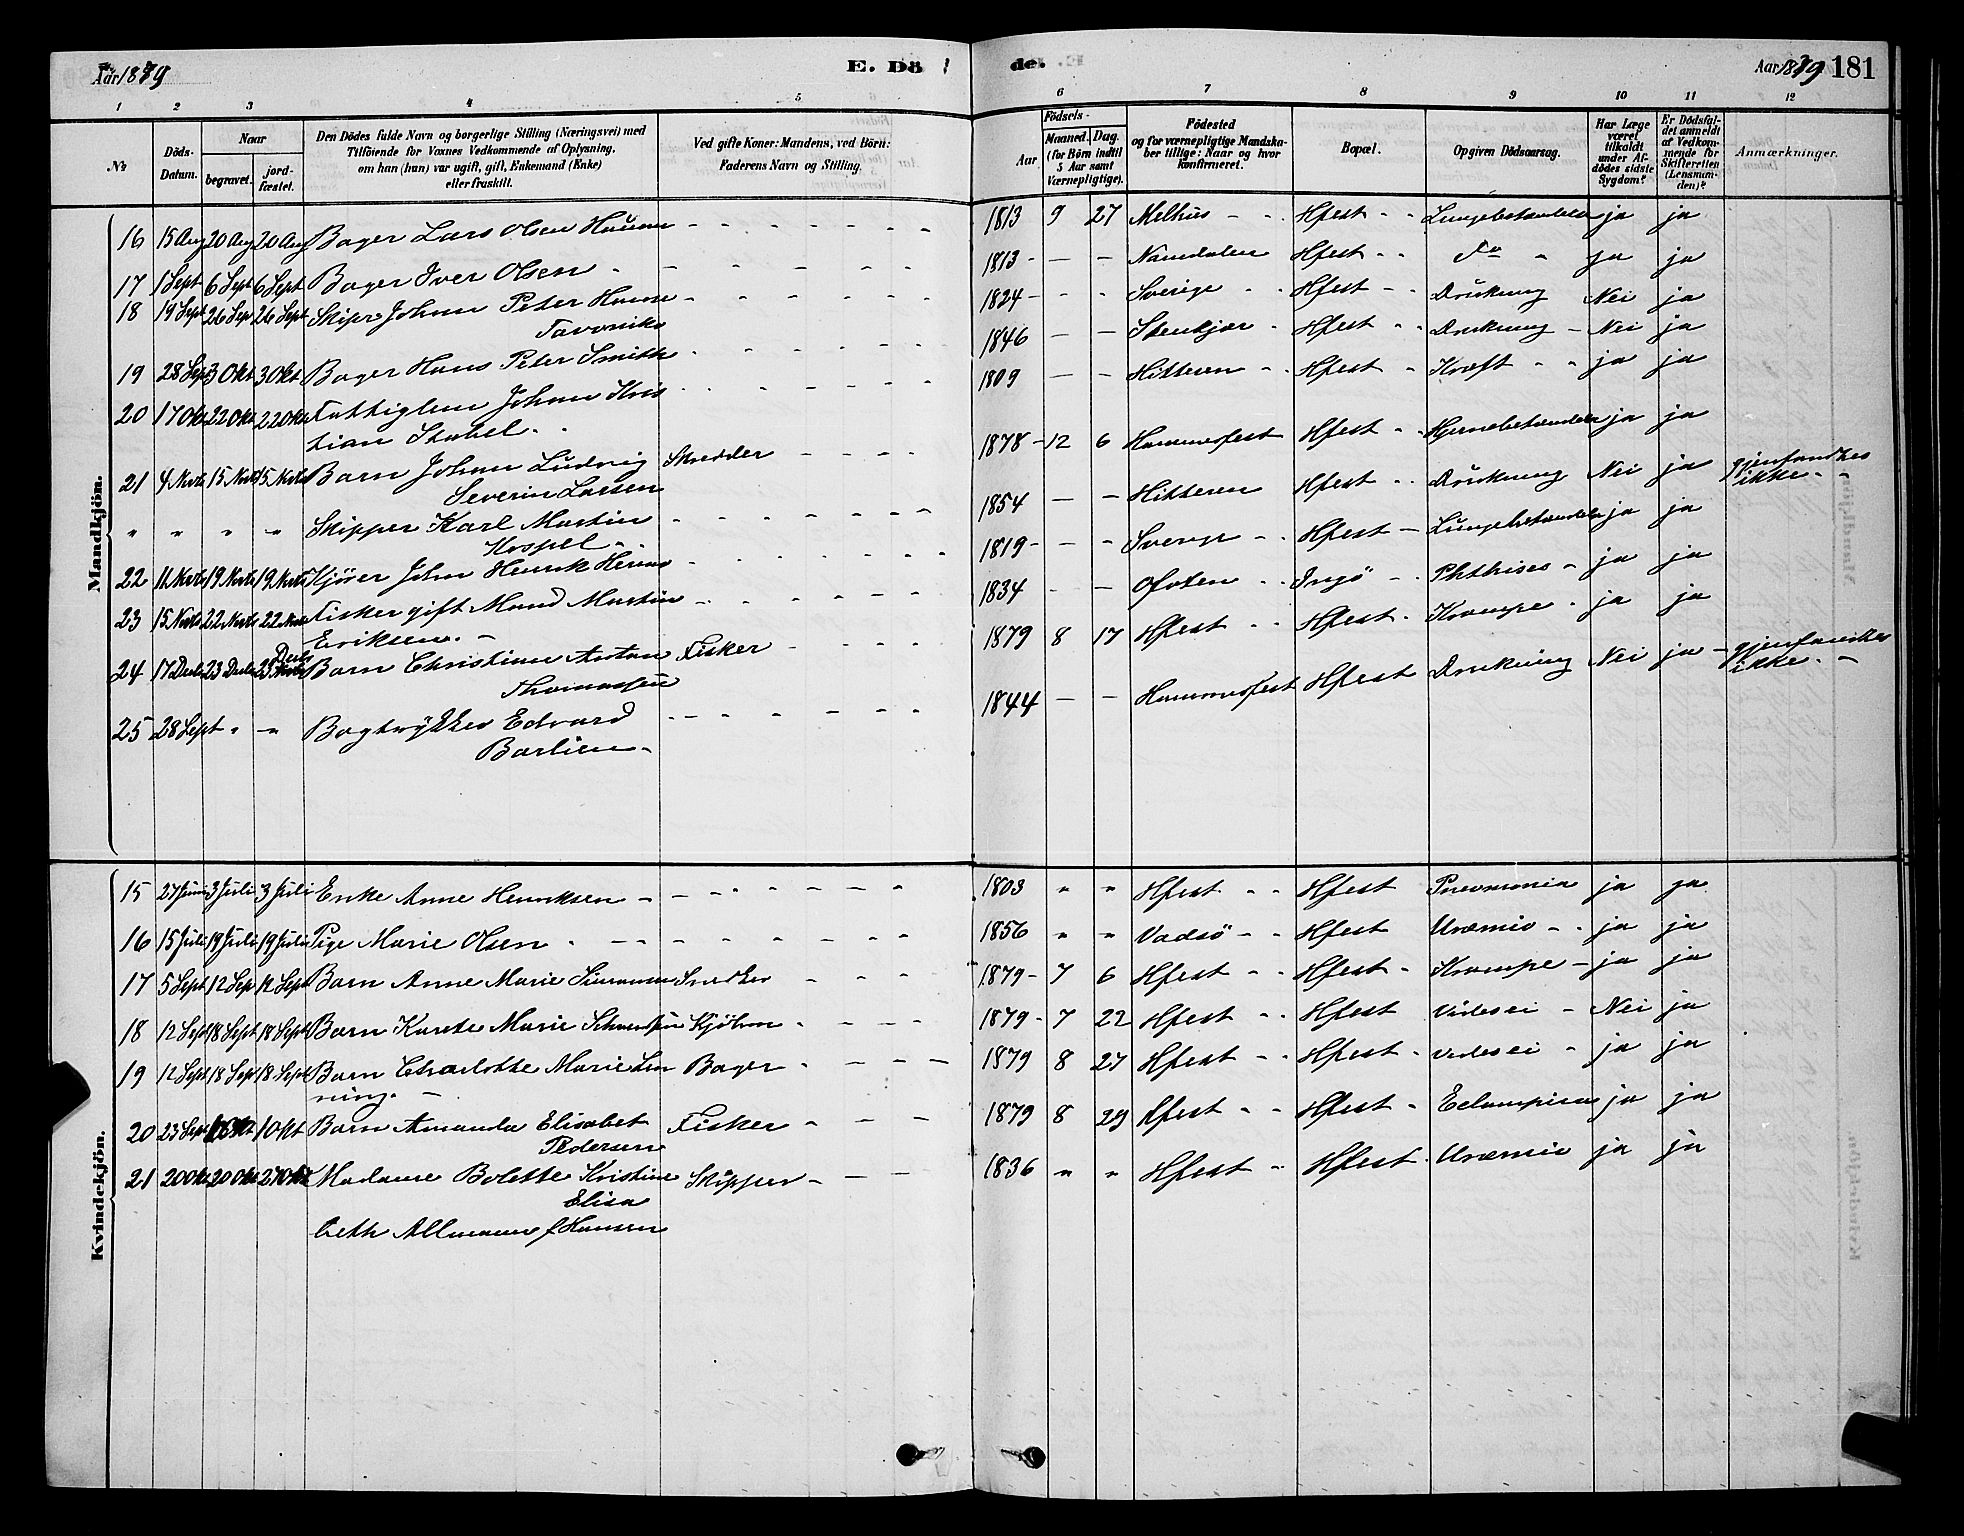 Aar 1879
E. Dö
de.
Aar 1879 181
1 2 3 4 5 6 7 8 9 10 11 12
No
Döds-Datum.
Naar
begravet.
jord-fæstet.
Den Dödes fulde Navn og borgerlige Stilling (Næringsvei) med
Tilföiende for Voxnes Vedkommende af Oplysning,
om han (hun) var ugift, gift, Enkemand (Enke)
eller fraskilt.
Ved gifte Koner: Mandens, ved Börn:
Faderens Navn og Stilling.
Födsels-
Aar
Maaned. Dag.
(for Börn indtil
5 Aar samt
Værnepligtige).
Födested
og for værnepligtige Mandska-
ber tillige: Naar og hvor
konfirmeret.
Bopæl.
Opgiven Dödsaarsag.
Har Læge
været
tilkaldt
under Af-
dödes sidste
Sygdom?
Er Dödsfal-
det anmeldt
af Vedkom-
mende for
Skifteretten
(Lensman-
den)?
Anmærkninger.
Mandkjön.
16 15 Aug 20 Aug 20 Aug Bager Lars Olsen 1813 9 27 Melhus Hfest ja ja
17 1 Sept 6 Sept 6 Sept Bager Iver Olsen 1813 Namdalen Hfest Do ja ja
18 19 Sept 26 Sep 26 Sept Skipr Johan Peter 1824 Sverige Hfest Drukning Nei ja
19 28 Sept 3 Okt 3 Okt Bager Hans Peter Smith 1846 Stenkjær Hfest Drukning Nei ja
20 17 Okt 22 Okt 22 Okt Fattiglem Johan Kris 1809 Hitteren Hfest Kræft ja ja
tian Stabel
21 4 Nvb 15 Nvb 15 Nvb Barn Johan Ludvig Skredder 1878 12 6 Hammerfest Hfest ja ja
Severin Larsen
" " " " Skipper Karl Martin 1854 Hitteren Hfest Drukning Nei ja gjenfandtes
ikke
22 11 Nvb 19 Nvb 19 Nvb Kjører John Henrik 1819 Sverige Hfest ja ja
23 15 Nvb 22 Nvb 22 Nvb Fisker gift Mand Martin 1834 Ofoten Ingö Phthises ja ja
Eriksen
24 17 Decb 23 Decb 23 Decb Barn Christian Anton Fisker 1879 8 17 Hfest Hfest Krampe ja ja
Thomassen
25 28 Sept " " Bogtrykker Edvard 1844 Hammerfest Hfest Drukning Nei ja gjenfandtes
Barlien ikke
Kvindekjön.
15 27 Juni 3 Juli 3 Juli Enke Anne Henriksen 1803 " " Hfest Hfest Pneomonia ja ja
16 15 Juli 19 Juli 19 Juli Pige Marie Olsen 1856 " " Vadsö Hfest Uræmie ja ja
17 5 Sept 12 Sep 12 Sept Barn Anne Marie Simonsen Snedker 1879 7 6 Hfest Hfest Krampe ja ja
18 12 Sept 18 Sept 18 Sept Barn Karete Marie 1879 7 22 Hfest Hfest Videsei Nei ja
19 12 Sept 18 Sept 18 Sept Barn Charlotte Marie Bager 1879 8 27 Hfest Hfest Videsei ja ja
ning.
20 23 Sept 1 Okt Barn Amanda Elisabet Fisker 1879 8 29 Hfest Hfest Eclampsia ja ja
Pedersen
21 20 Okt Madame Bolette Kristine Skipper 1836 " " Hfest Hfest Uræmie ja ja
Elisa
beth Allmann f Hansen